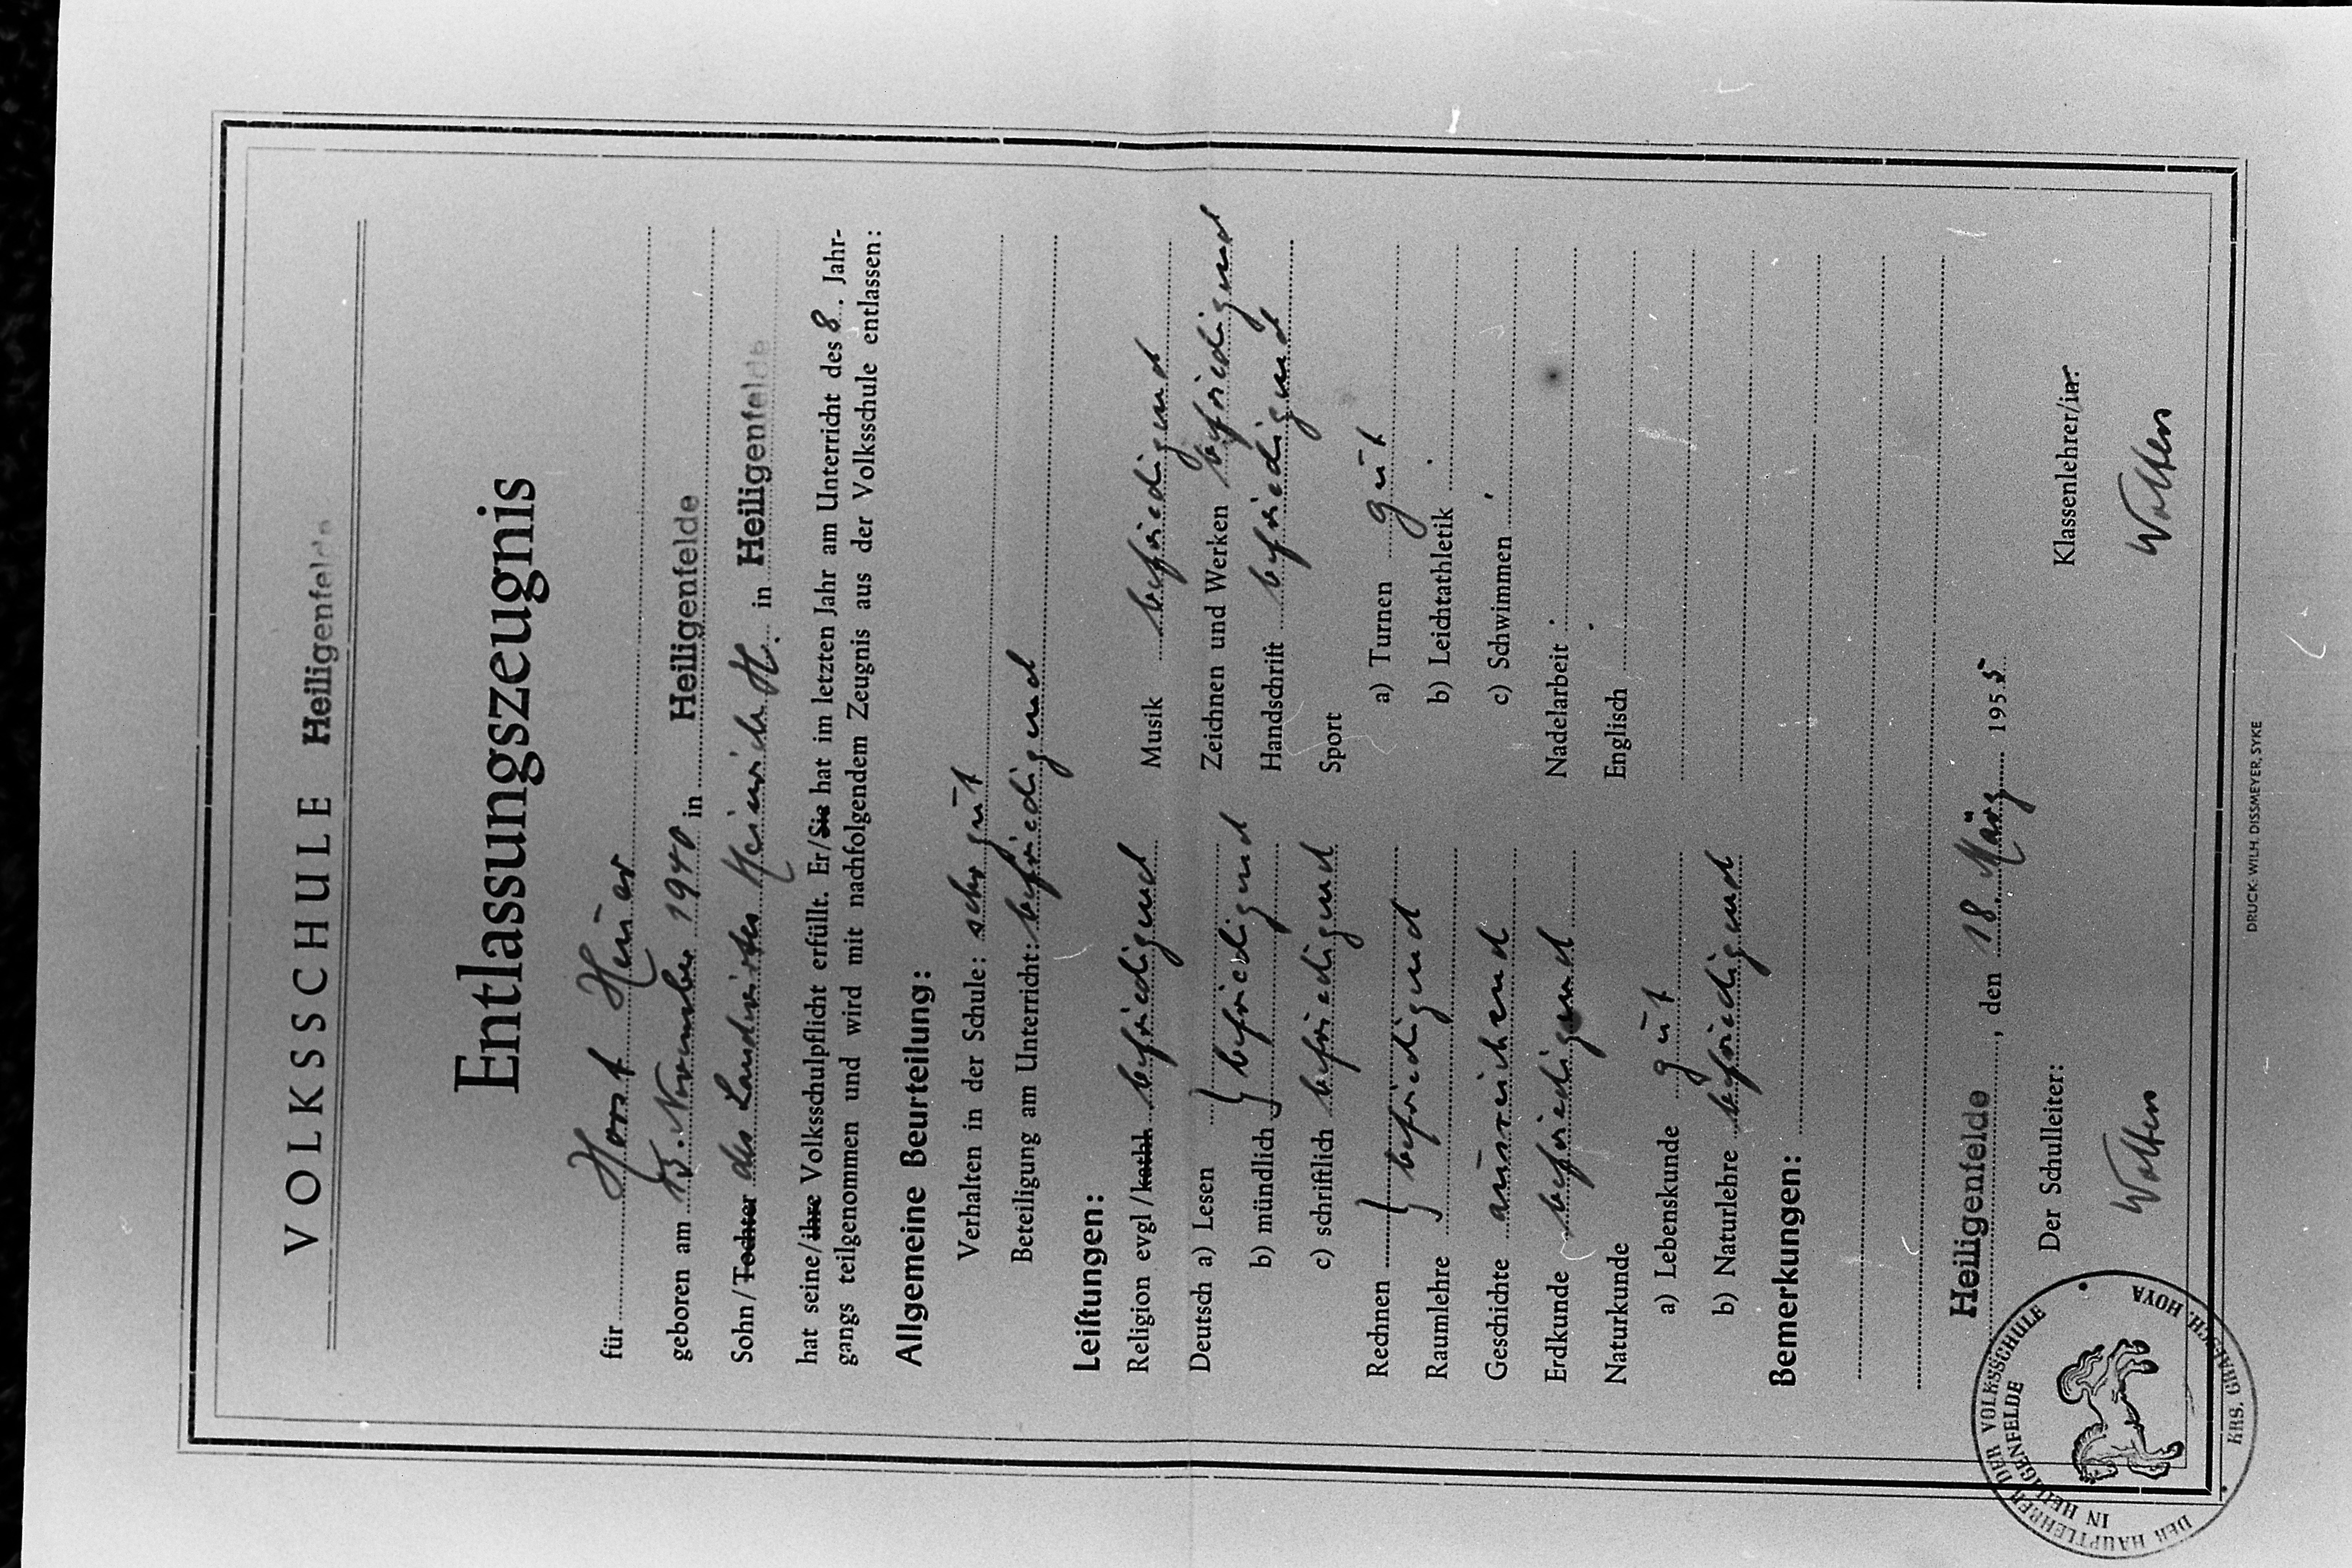 VOLKSSCHULE Heiligenfelde
Entlassungszeugnis
für Horst Heuer
geboren am 13. November 1940 in Heiligenfelde
Sohn/Tochter des Landwirtes Heinrich H. in Heiligenfelde
hat seine/ihre Volksschulpflicht erfüllt. Er/Sie hat im letzten Jahr am Unterricht des 8. Jahr-
gangs teilgenommen und wird mit nachfolgendem Zeugnis aus der Volksschule entlassen:
Allgemeine Beurteilung:
Verhalten in der Schule: sehr gut
Beteiligung am Unterricht: befriedigend
Leiſtungen:
Religion evgl/kathl. befriedigend
Deutsch a) Lesen
b) mündlich } befriedigend
c) schriftlich befriedigend
Rechnen
Raumlehre } befriedigend
Geschichte ausreichend
Erdkunde befriedigend
Naturkunde
a) Lebenskunde gut
b) Naturlehre befriedigend
Musik befriedigend
Zeichnen und Werken befriedigend
Handschrift befriedigend
Sport
a) Turnen gut
b) Leichtathletik
c) Schwimmen
Nadelarbeit
Englisch
Bemerkungen:
Heiligenfelde, den 18. März 1955
Der Schulleiter:
Klassenlehrer/in:
Wolters
Wolters
DER HAUPTLEHRER DER VOLKSSCHULE
IN HEILIGENFELDE
KRS. GRAFSCH. HOYA
DRUCK: WILH. DISSMEYER, SYKE